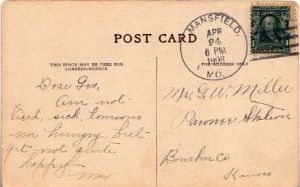 POST CARD
THIS SPACE MAY BE USED FOR
CORRESPONDENCE.
FOR ADDRESS ONLY.
MANSFIELD,
APR
24
6 PM
1908
MO.
Dear Geo,
Am not
tired, sick, lonesome
nor hungry, but
yet not quite
happy.
Mr. G. W. Miller
Pawnee Station
Bourbon Co
Kansas